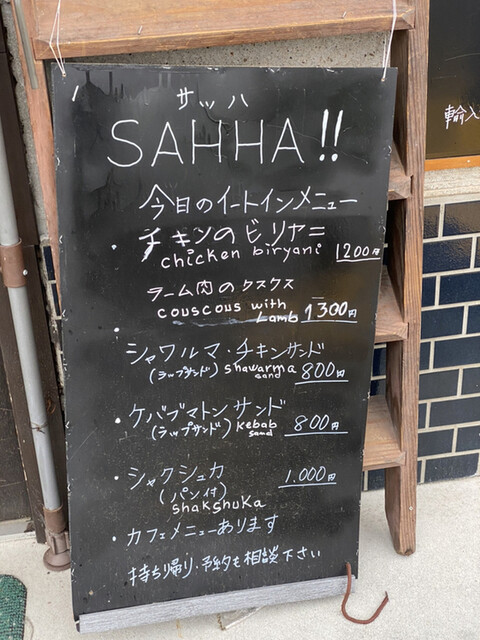 サッハ
SAHHA!!
今日のイートインメニュー
・チキンのビリヤニ
chicken biryani 1200円
ラーム肉のクスクス
couscous with Lamb 1300円
・シャワルマ・チキンサンド
(ラップサンド) shawarma sand 800円
・ケバブマトンサンド
(ラップサンド) kebab sand 800円
・シャクシュカ 1.000円
(パン付)
shakshuka
・カフェメニューあります
持ち帰り・予約も相談下さい
輸入